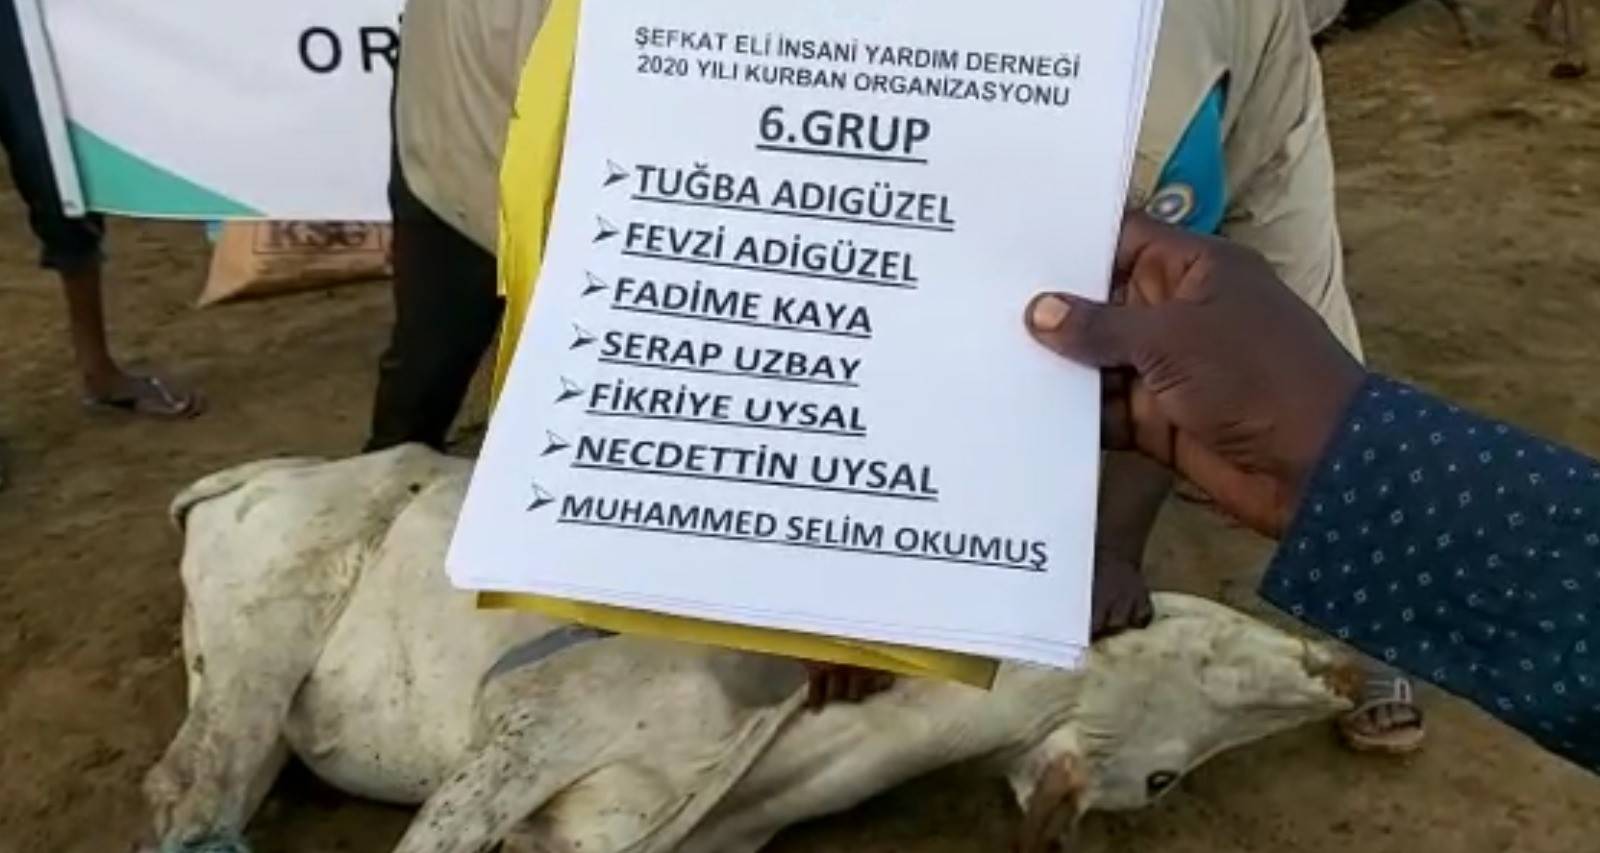 OR
KSG
ŞEFKAT ELİ İNSANİ YARDIM DERNEĞİ
2020 YILI KURBAN ORGANİZASYONU
6.GRUP
TUĞBA ADIGÜZEL
FEVZİ ADİGÜZEL
FADİME KAYA
SERAP UZBAY
FİKRİYE UYSAL
NECDETTİN UYSAL
MUHAMMED SELİM OKUMUŞ